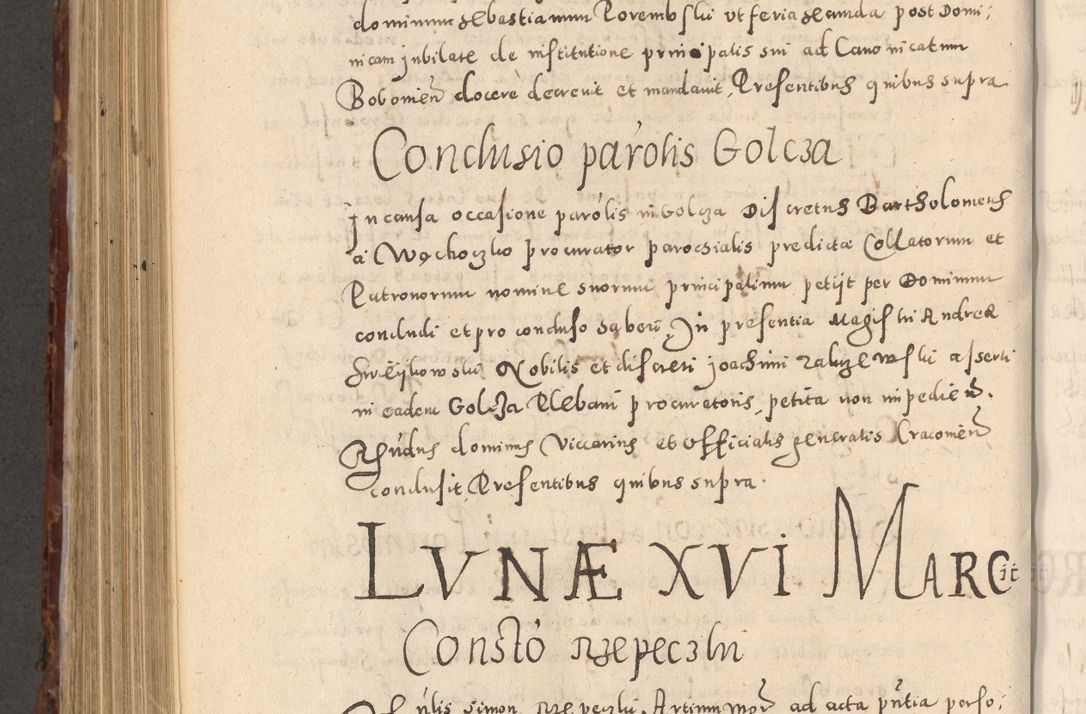 dominum Sebastianum Porembski ut feria secunda post Domi:
nicam jubilate de institutione principalis sui ad Canonicatum
Bobonien̄ docere decrevit et mandavit, Presentibus quibus supra
Conclusio parolis Golcza
In causa occasione parolis in Golcza Discretus Bartholomeus
a Wąchoczko procurator parochialis predictæ Collatorum et
Patronorum nomine suorum principalium petijt per Dominum
concludi et pro concluso haberi, In presentia Magistri Andreæ
Nobilis et discreti joachimi asserti
in eadem Golcza Plebani procuratoris, petita non impedien̄.
Rn̄dus dominus Viccarius et officialis generalis Cracovien̄
conclusit Presentibus quibus supra.
LVNÆ XVI MARCij
Consto̅ rzepeczki
simon rzepeczki, Artium mgr̄ ad acta pn̄tia perso: